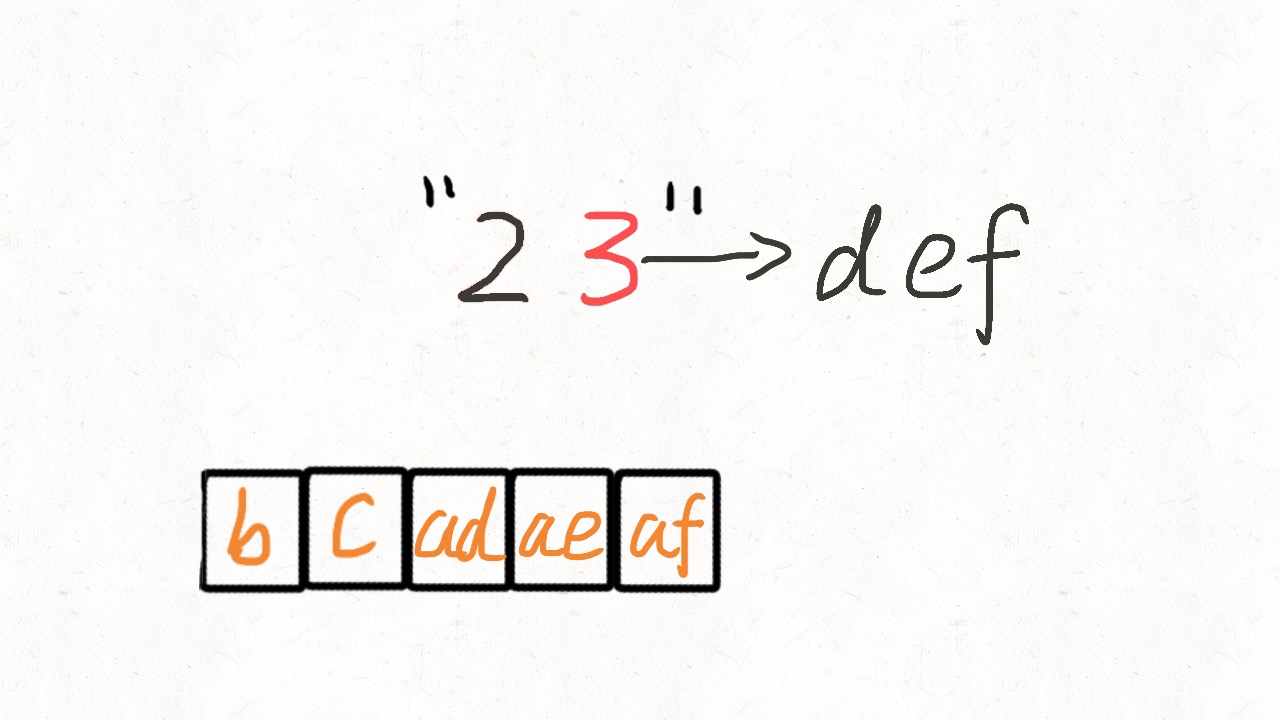 "23" → def
b c ad ae af